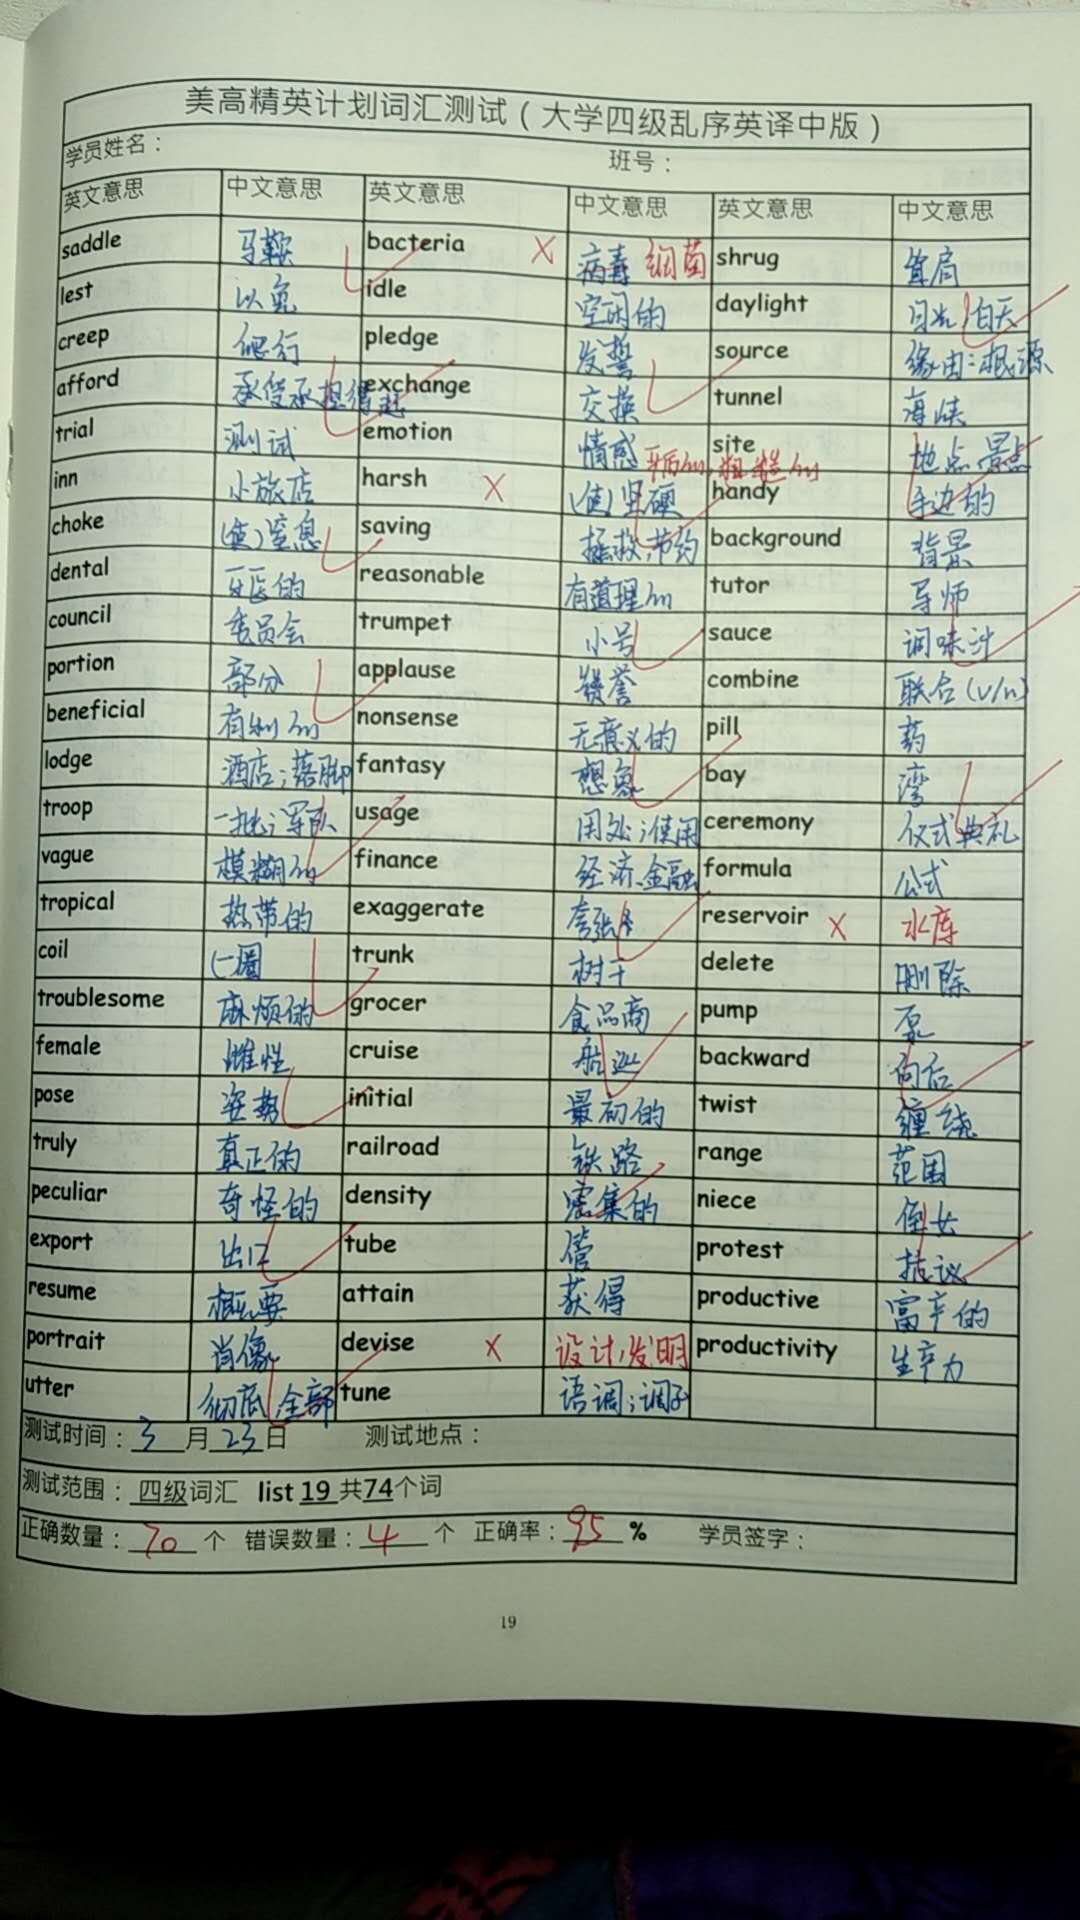 美高精英计划词汇测试（大学四级乱序英译中版）
学员姓名： 班号：
英文意思 中文意思 英文意思 中文意思 英文意思 中文意思
saddle 马鞍 bacteria × 病毒 细菌 shrug 耸肩
lest 以免 idle 空闲的 daylight 日光 白天
creep 爬行 pledge 发誓 source 缘由；根源
afford 承受承担得起 exchange 交换 tunnel 海峡
trial 测试 emotion 情感 site 地点 景点
inn 小旅店 harsh × (使)坚硬 严厉的,粗糙的 handy 手边的
choke (使)窒息 saving 拯救,节约 background 背景
dental 牙医的 reasonable 有道理的 tutor 导师
council 委员会 trumpet 小号 sauce 调味汁
portion 部分 applause 赞誉 combine 联合(v/n)
beneficial 有利的 nonsense 无意义的 pill 药
lodge 酒店；落脚 fantasy 想象 bay 湾
troop 一批；军队 usage 用处；使用 ceremony 仪式典礼
vague 模糊的 finance 经济、金融 formula 公式
tropical 热带的 exaggerate 夸张 reservoir × 水库
coil (一)圈 trunk 树干 delete 删除
troublesome 麻烦的 grocer 食品商 pump 泵
female 雌性 cruise 航巡 backward 向后
pose 姿势 initial 最初的 twist 缠绕
truly 真正的 railroad 铁路 range 范围
peculiar 奇怪的 density 密集的 niece 侄女
export 出口 tube 管 protest 抗议
resume 概要 attain 获得 productive 富产的
portrait 肖像 devise × 设计,发明 productivity 生产力
utter 彻底 全部 tune 语调；调子
测试时间：3月23日 测试地点：
测试范围：四级词汇 list 19 共74个词
正确数量：70 个 错误数量：4 个 正确率：95 % 学员签字：
19